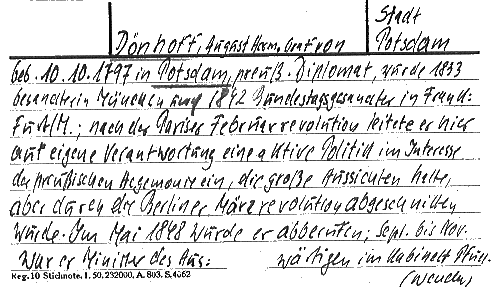 Stadt
Dönhoff, August Herm. Graf von Potsdam
geb. 10.10.1797 in Potsdam, preuß. Diplomat, wurde 1833
Gesandter in München und 1842 Bundestagsgesandter in Frank-
furt/M.; nach der Pariser Februarrevolution leitete er hier
auf eigene Verantwortung eine aktive Politik im Interesse
der preußischen Hegemonie ein, die große Aussichten hatte,
aber durch die Berliner Märzrevolution abgeschnitten
wurde. Im Mai 1848 wurde er abberufen; Sept. bis Nov.
war er Minister des Aus- wärtigen im Kabinett Pfuel.
Reg. 10 Stidnote. I. 50. 232000. A. 803. S. 4062
(wenden)